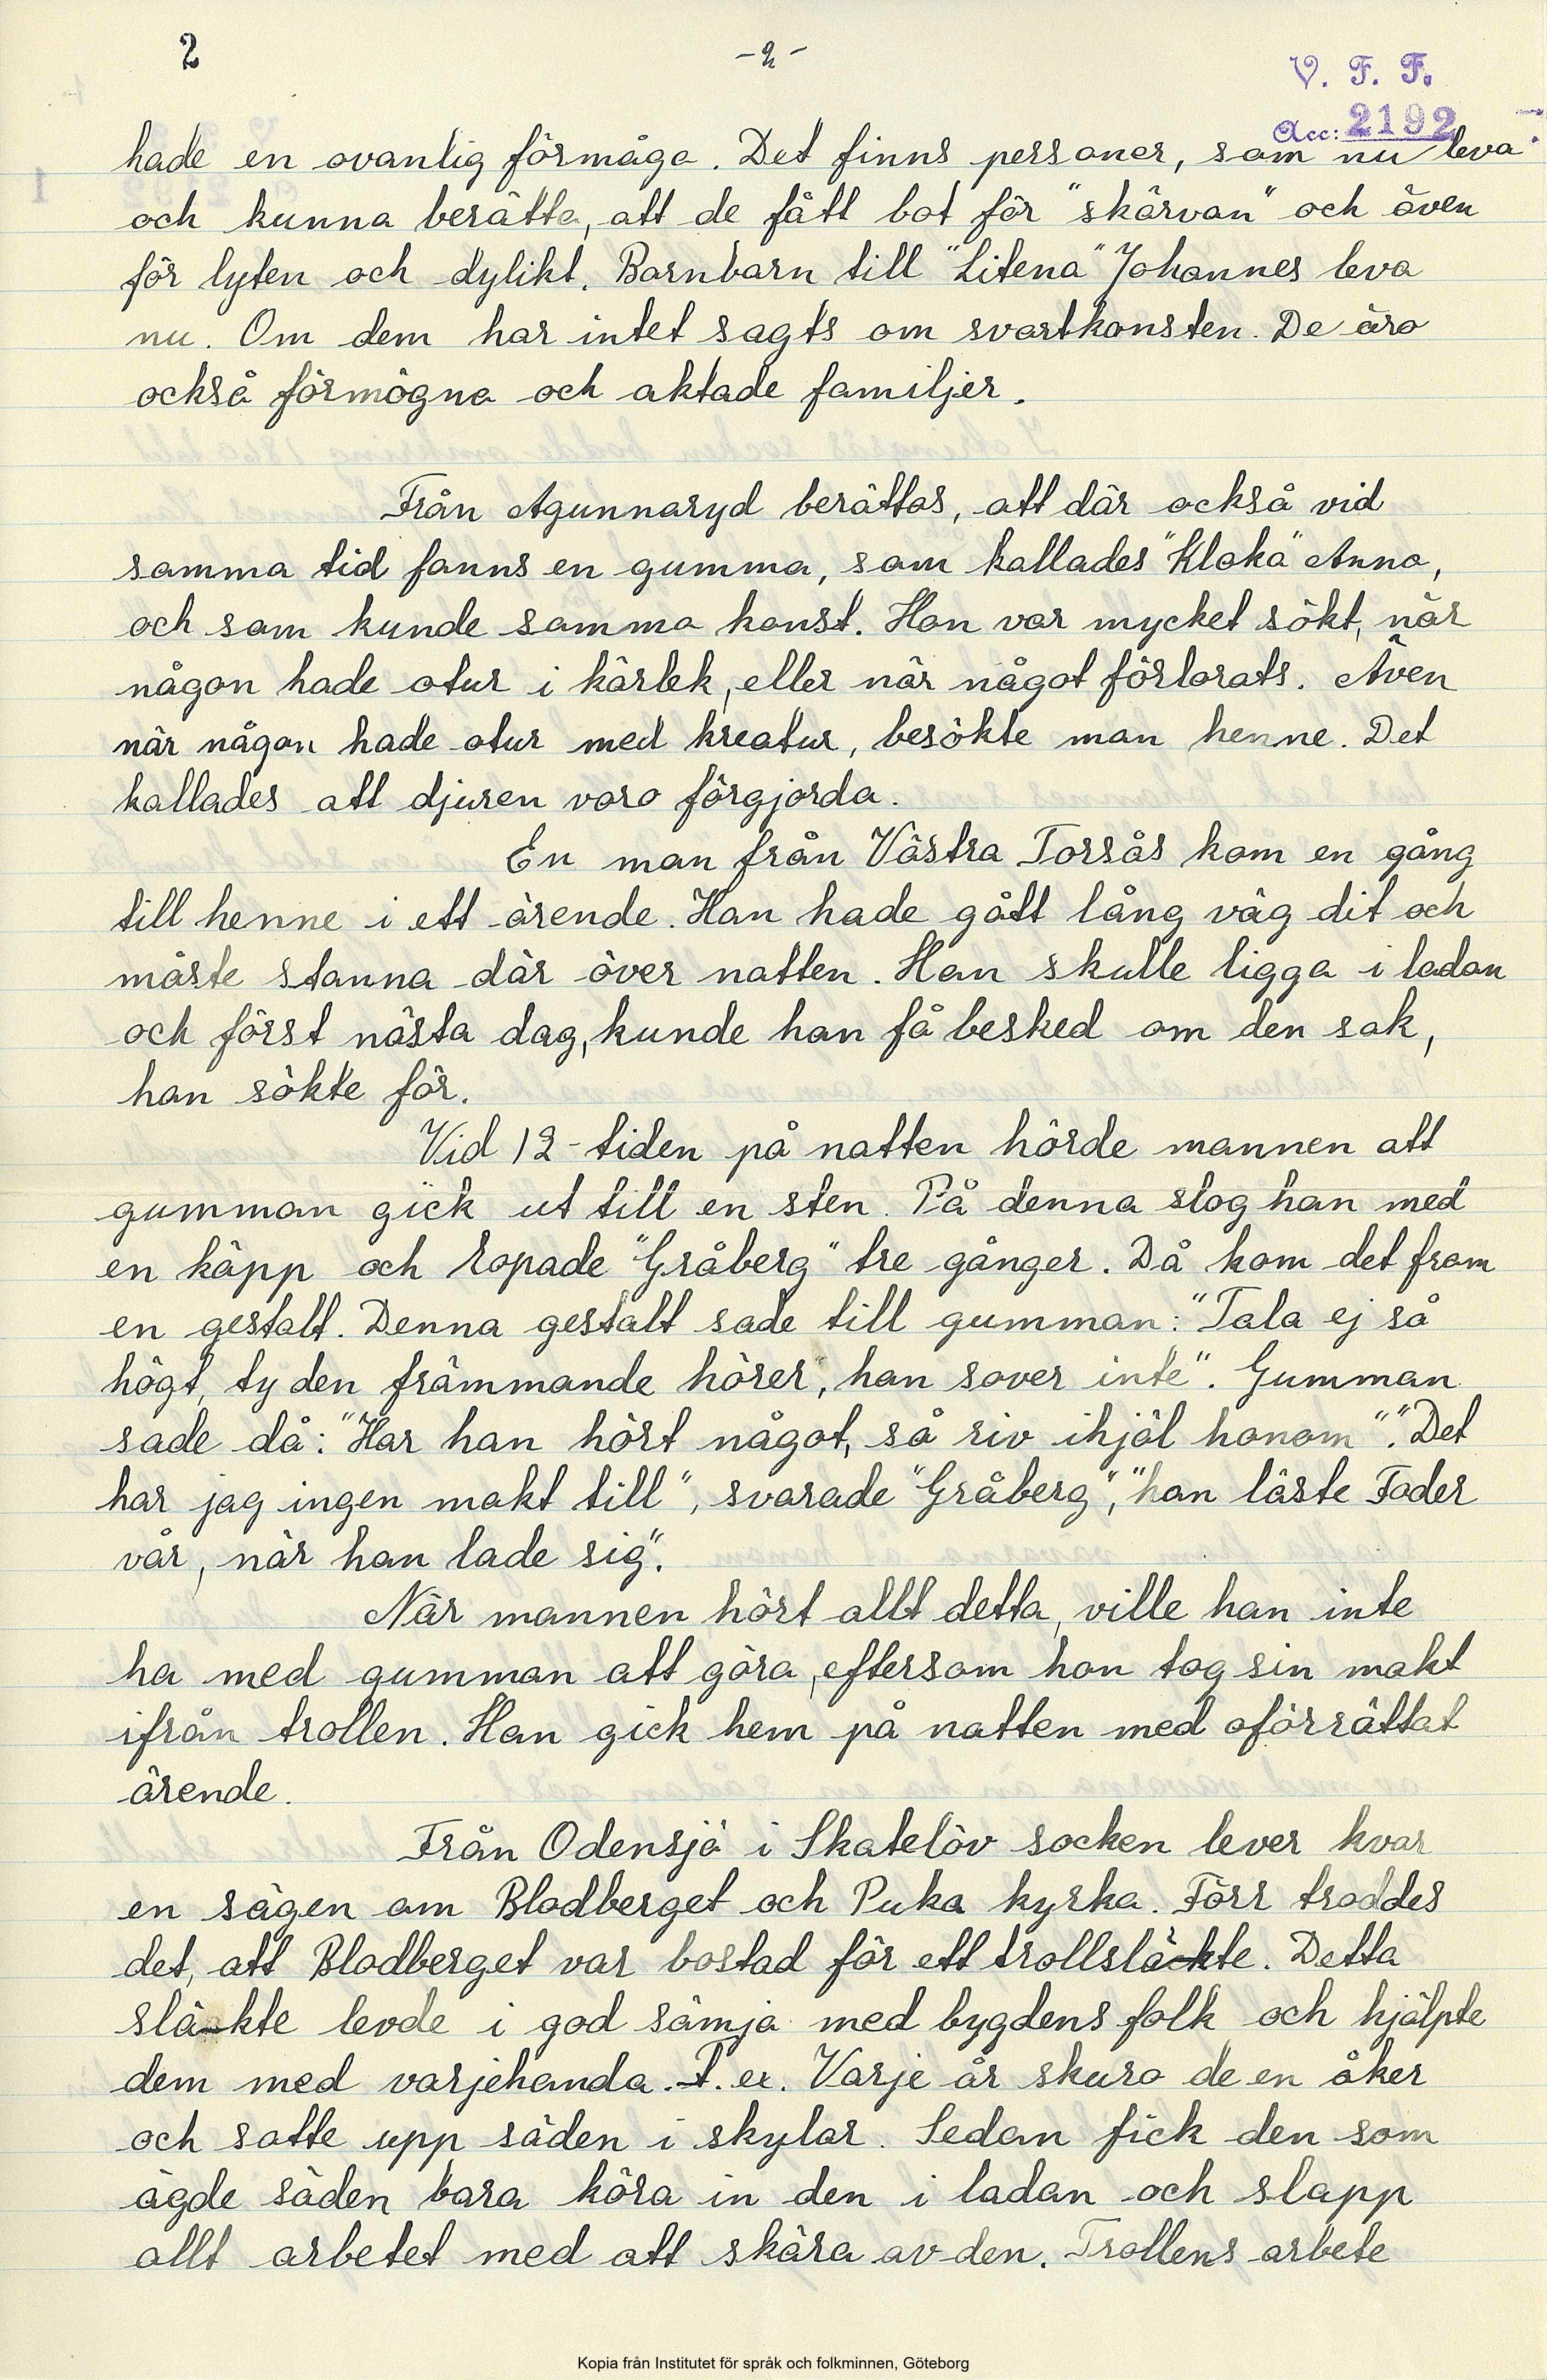 2
-2-
V. F. F.
Acc: 2192
hade en ovanlig förmåga. Det finns personer, som nu leva
och kunna berätta, att de fått bot för "skärvan" och även
för lyten och dylikt. Barnbarn till "Litena" Johannes leva
nu. Om dem har intet sagts om svartkonsten. De äro
också förmögna och aktade familjer.
Från Agunnaryd berättas, att där också vid
samma tid fanns en gumma, som kallades "Kloka" Anna,
och som kunde samma konst. Hon var mycket sökt, när
någon hade otur i kärlek, eller när något förlorats. Även
när någon hade otur med kreatur, besökte man henne. Det
kallades att djuren voro förgjorda.
En man från Västra Torsås kom en gång
till henne i ett ärende. Han hade gått lång väg dit och
måste stanna där över natten. Han skulle ligga i ladan
och först nästa dag, kunde han få besked om den sak,
han sökte för.
Vid 12-tiden på natten hörde mannen att
gumman gick ut till en sten. På denna slog hon med
en käpp och ropade "Gråberg" tre gånger. Då kom det fram
en gestalt. Denna gestalt sade till gumman: "Tala ej så
högt, ty den främmande hörer", han sover inte". Gumman
sade då: "Har han hört något, så riv ihjäl honom". "Det
har jag ingen makt till", svarade "Gråberg", "han läste Fader
vår, när han lade sig".
När mannen hört allt detta, ville han inte
ha med gumman att göra, eftersom hon tog sin makt
ifrån trollen. Han gick hem på natten med oförrättat
ärende.
Från Odensjö i Skatelöv socken lever kvar
en sägen om Blodberget och Puka kyrka. Förr troddes
det, att Blodberget var bostad för ett trollsläkte. Detta
släkte levde i god sämja med bygdens folk och hjälpte
dem med varjehanda. T. ex. Varje år skuro de en åker
och satte upp säden i skylar. Sedan fick den som
ägde säden bara köra in den i ladan och slapp
allt arbetet med att skära av den. Trollens arbete
Kopia från Institutet för språk och folkminnen, Göteborg